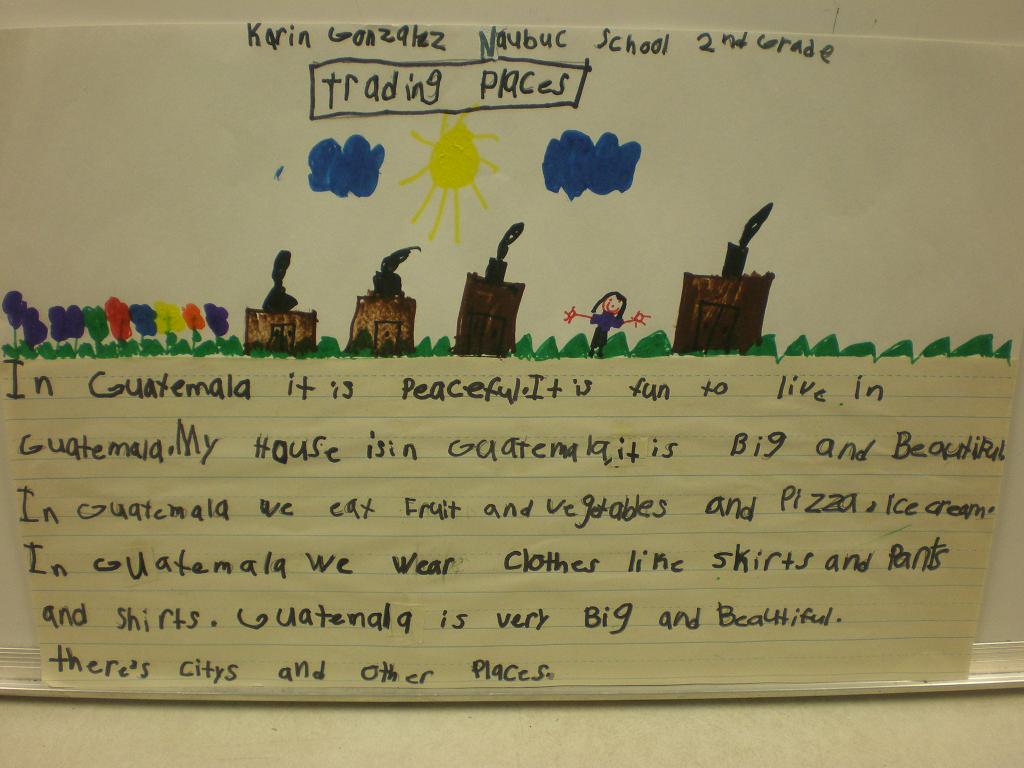 Karin Gonzalez Naubuc School 2nd Grade
trading Places
In Guatemala it is Peaceful.It is fun to live in
Guatemala.My House is in Guatemala,it is Big and Beautiful
In Guatemala we eat Fruit and vegetables and Pizza, Ice cream.
In Guatemala we wear Clothes like skirts and Pants
and shirts. Guatemala is very Big and Beautiful.
there's citys and other Places.